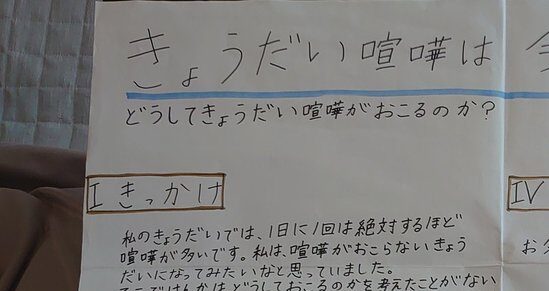 きょうだい喧嘩は
どうしてきょうだい喧嘩がおこるのか?
I きっかけ
私のきょうだいでは、1日に1回は絶対するほど
喧嘩が多いです。私は、喧嘩がおこらないきょう
だいになってみたいなと思っていました。
どうしておこるのかを考えたことがない
IV
お